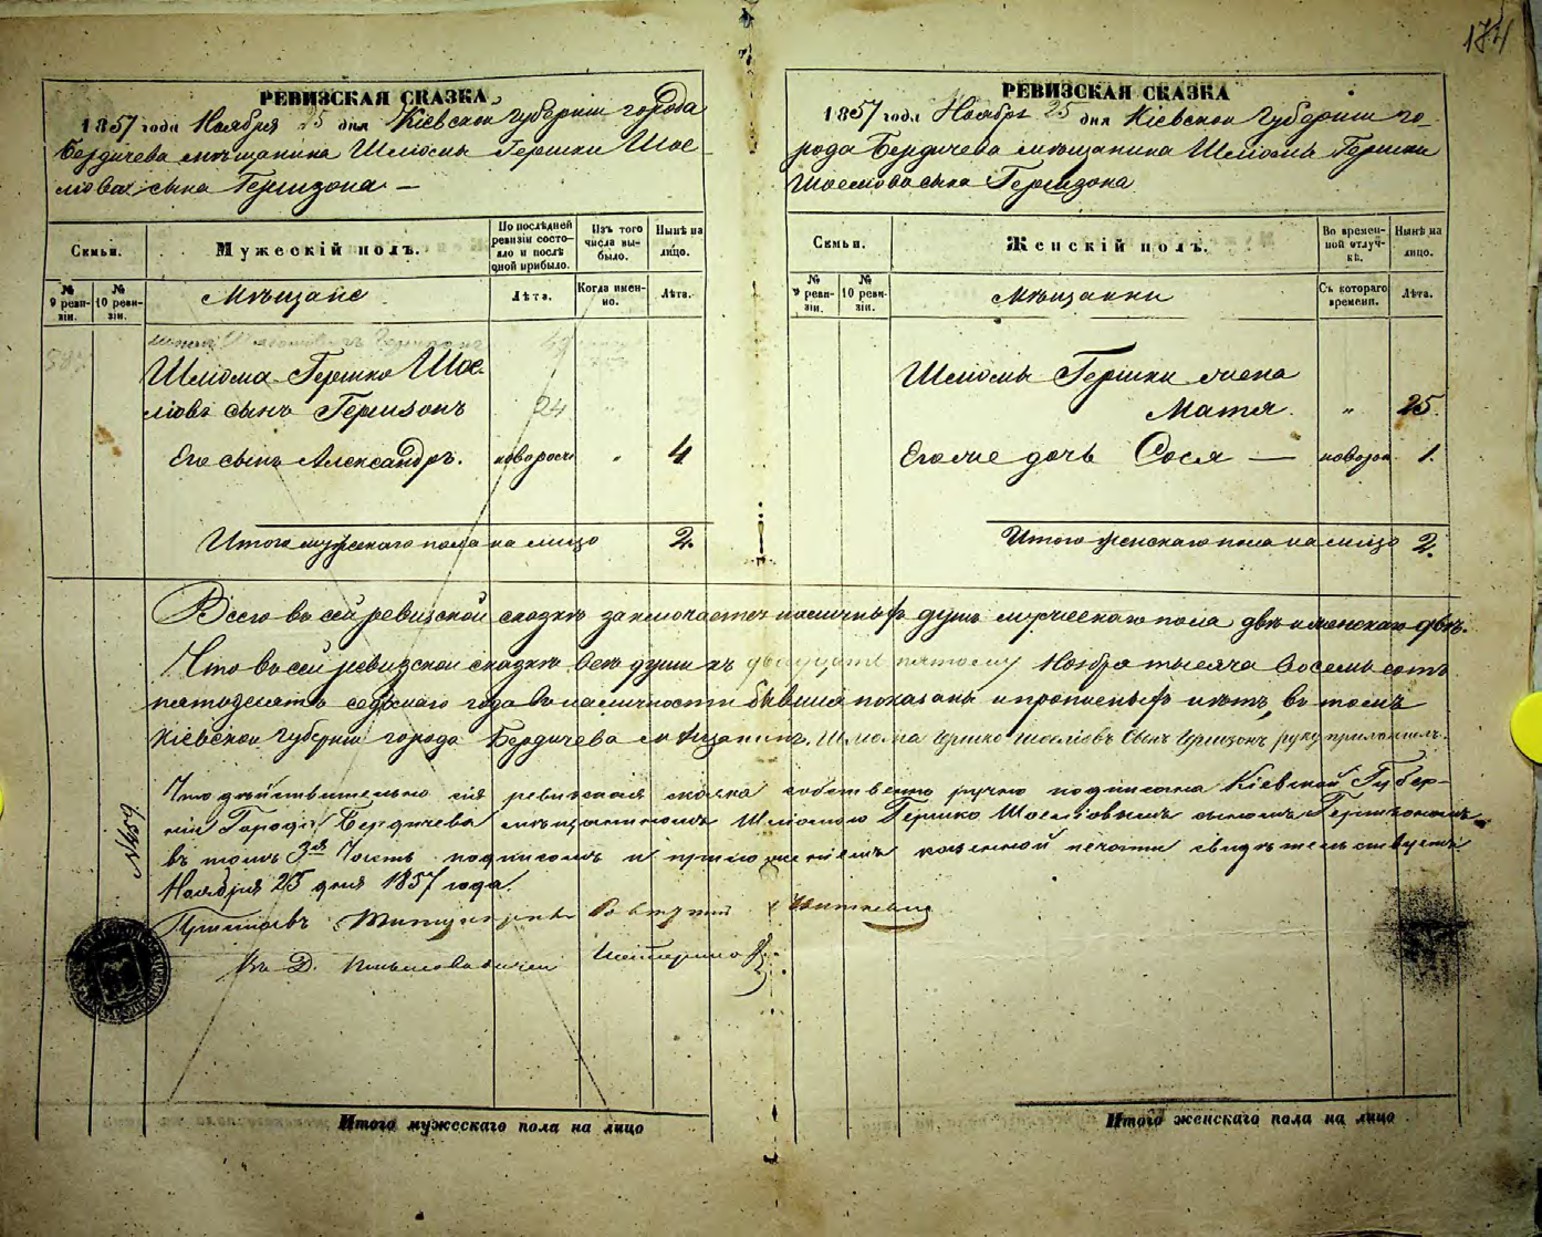 174
РЕВИЗСКАЯ СКАЗКА
1857 года Ноября 25 дня Кіевской Губерніи города
Бердичева мѣщанина Шліомы Гершки Шое
ліова сына Гершзона —
Семьи.
Мужескій полъ.
По послѣдней ревизіи состояло и послѣ оной прибыло.
Изъ того числа выбыло.
Нынѣ на лицо.
№ 9 ревизіи.
№ 10 ревизіи.
Мѣщане
Лѣта.
Когда именно.
Лѣта.
587
Шліома Гершко Шое
ліовъ сынъ Гершзонъ 24 "
Его сынъ Александръ. новорож " 4
Итого мужескаго пола на лицо 2.
РЕВИЗСКАЯ СКАЗКА
1857 года Ноября 25 дня Кіевской Губерніи го
рода Бердичева мѣщанина Шліомы Гершки
Шоеліова сына Гершзона
Семьи.
Женскій полъ.
Во временной отлучкѣ.
Нынѣ на лицо.
№ 9 ревизіи.
№ 10 ревизіи.
Мѣщанки
Съ котораго времени.
Лѣта.
Шліомы Гершки жена
Матя. " 25.
Его же дочь Сося — новорож. 1.
Итого женскаго пола на лицо 2.
Всего въ сей ревизской сказкѣ заключается наличныхъ душъ мужескаго пола двѣ и женскаго двѣ.
Что въ сей ревизской сказкѣ всѣ души къ двадцать пятому Ноября тысяча восемь сотъ
пятьдесятъ седьмаго года въ наличности бывшія показаны и прописныхъ нѣтъ, въ томъ
Кіевской Губерніи города Бердичева мѣщанинъ. Шліома Гершко Шоеліовъ сынъ Гершзонъ руку приложилъ.
Что дѣйствительно сія ревизская сказка собственно ручно подписана Кіевской Губер-
ніи Города Бердичева мѣщаниномъ Шліомою Гершко Шоеліовымъ сыномъ Гершзономъ
въ томъ 3я Часть подписомъ и приложеніемъ казенной печати свидѣтельствуетъ.
Ноября 25 дня 1857 года.
Приставъ
№ 459
Итого мужескаго пола на лицо
Итого женскаго пола на лицо